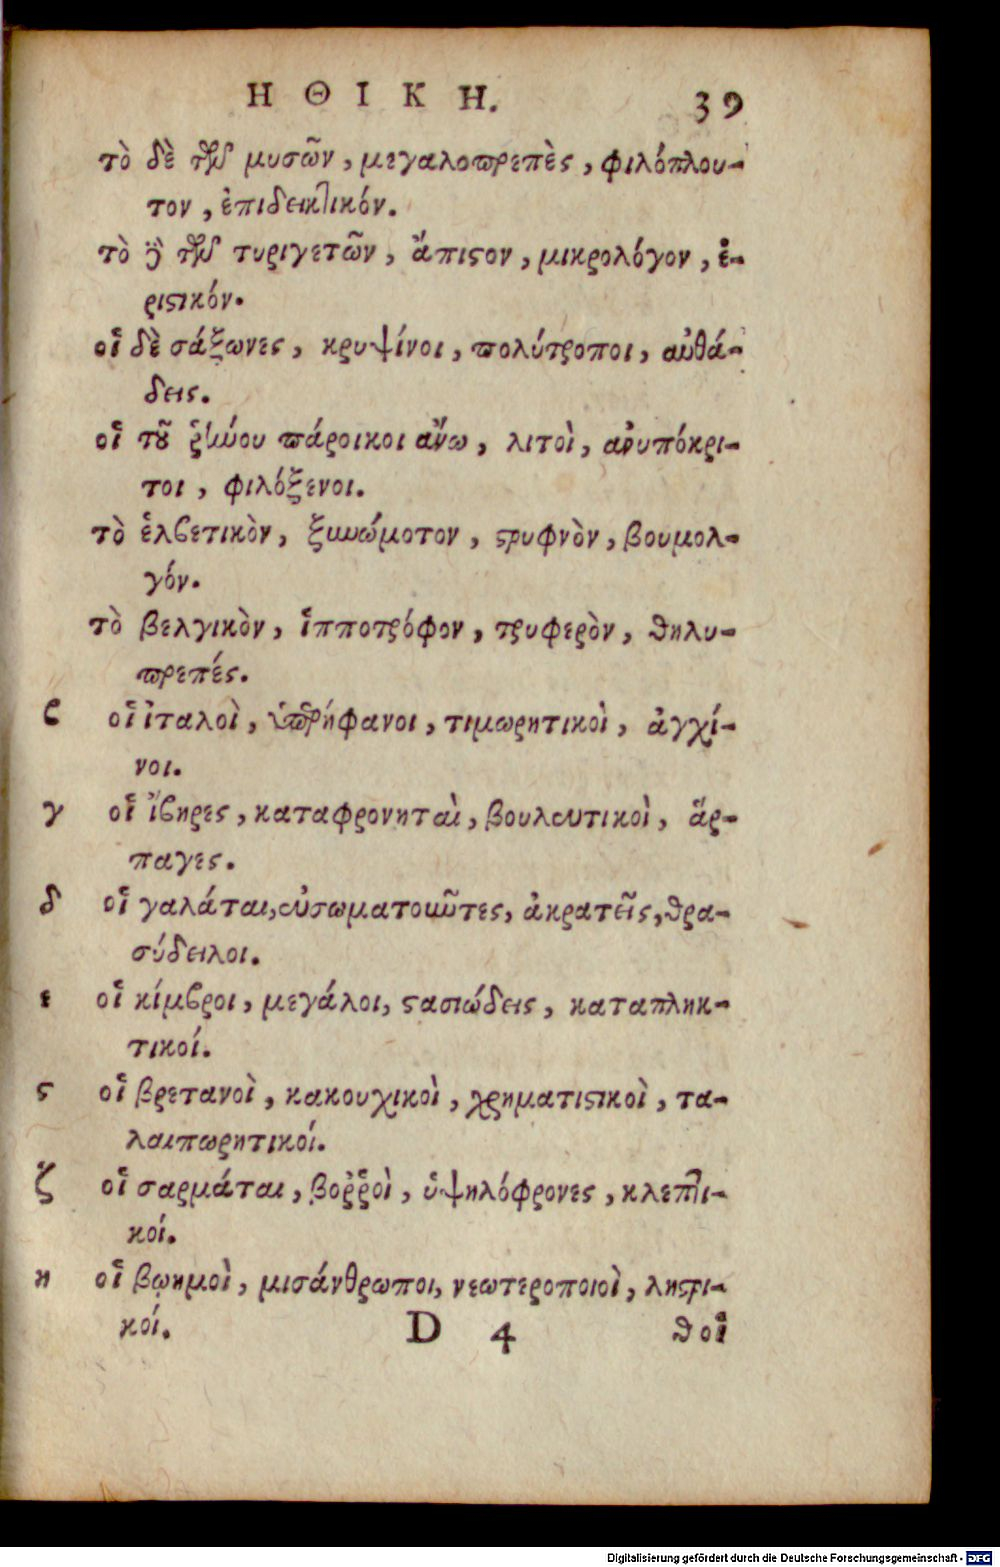 ΗΘΙΚΗ. 39
τὸ δὲ τῶν μυσῶν, μεγαλοπρεπὲς, φιλόπλου-
τον, ἐπιδεικτικόν.
τὸ δὲ τῶν τυριγετῶν, ἄπιστον, μικρολόγον, ἐ-
ριστικόν.
οἱ δὲ σάξωνες, κρυψίνοι, πολύτροποι, αὐθά-
δεις.
οἱ τοῦ ῥήνου πάροικοι ἄνω, λιτοὶ, ἀνυπόκρι-
τοι, φιλόξενοι.
τὸ ἑλβετικὸν, ξυνώμοτον, στρυφνὸν, βουμολ-
γόν.
τὸ βελγικὸν, ἱπποτρόφον, τρυφερὸν, θηλυ-
πρεπές.
ϛ οἱ ἰταλοὶ, ὑπερήφανοι, τιμωρητικοὶ, ἀγχί-
νοι.
γ οἱ ἴβηρες, καταφρονηταὶ, βουλευτικοὶ, ἅρ-
παγες.
δ οἱ γαλάται, εὐσωματοῦντες, ἀκρατεῖς, θρα-
σύδειλοι.
ε οἱ κίμβροι, μεγάλοι, στασιώδεις, καταπληκ-
τικοί.
ϛ οἱ βρετανοὶ, κακουχικοὶ, χρηματιστικοὶ, τα-
λαιπωρητικοί.
ζ οἱ σαρμάται, βοῤῥοὶ, ὑψηλόφρονες, κλεπτι-
κοί.
η οἱ βωημοὶ, μισάνθρωποι, νεωτεροποιοὶ, ληστρι-
κοί. D 4 θ οἱ
Digitalisierung gefördert durch die Deutsche Forschungsgemeinschaft - DFG